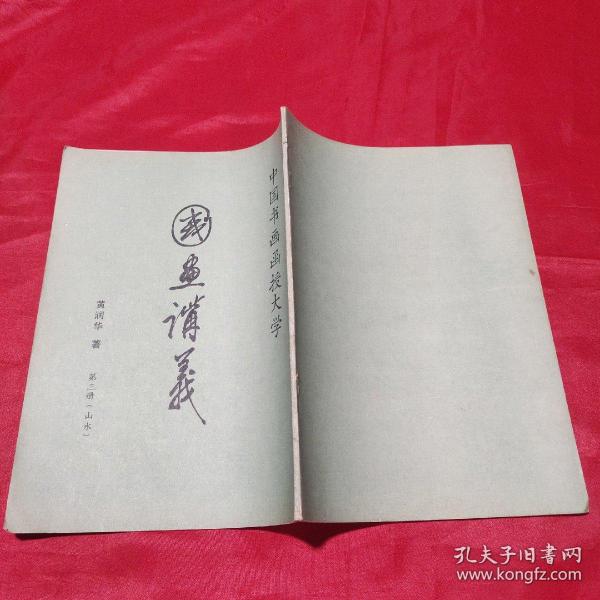 中国书画函授大学
國畫講義
黄润华 著
第二册(山水)
孔夫子旧书网
www.kongfz.com